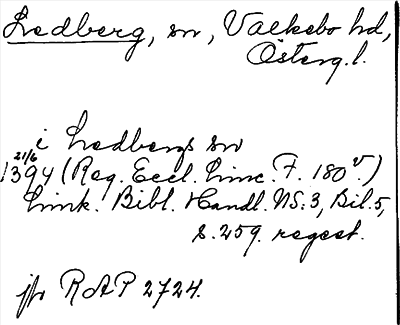 Ledberg, sn, Valkebo hd,
Österg.l.
i Ledbergs sn
21/6
1394 (Reg. Eccl. Linc. F. 180 v.)
Link. Bibl. Handl. NS:3, Bil.5,
s. 259. regest.
jfr RAP 2724.